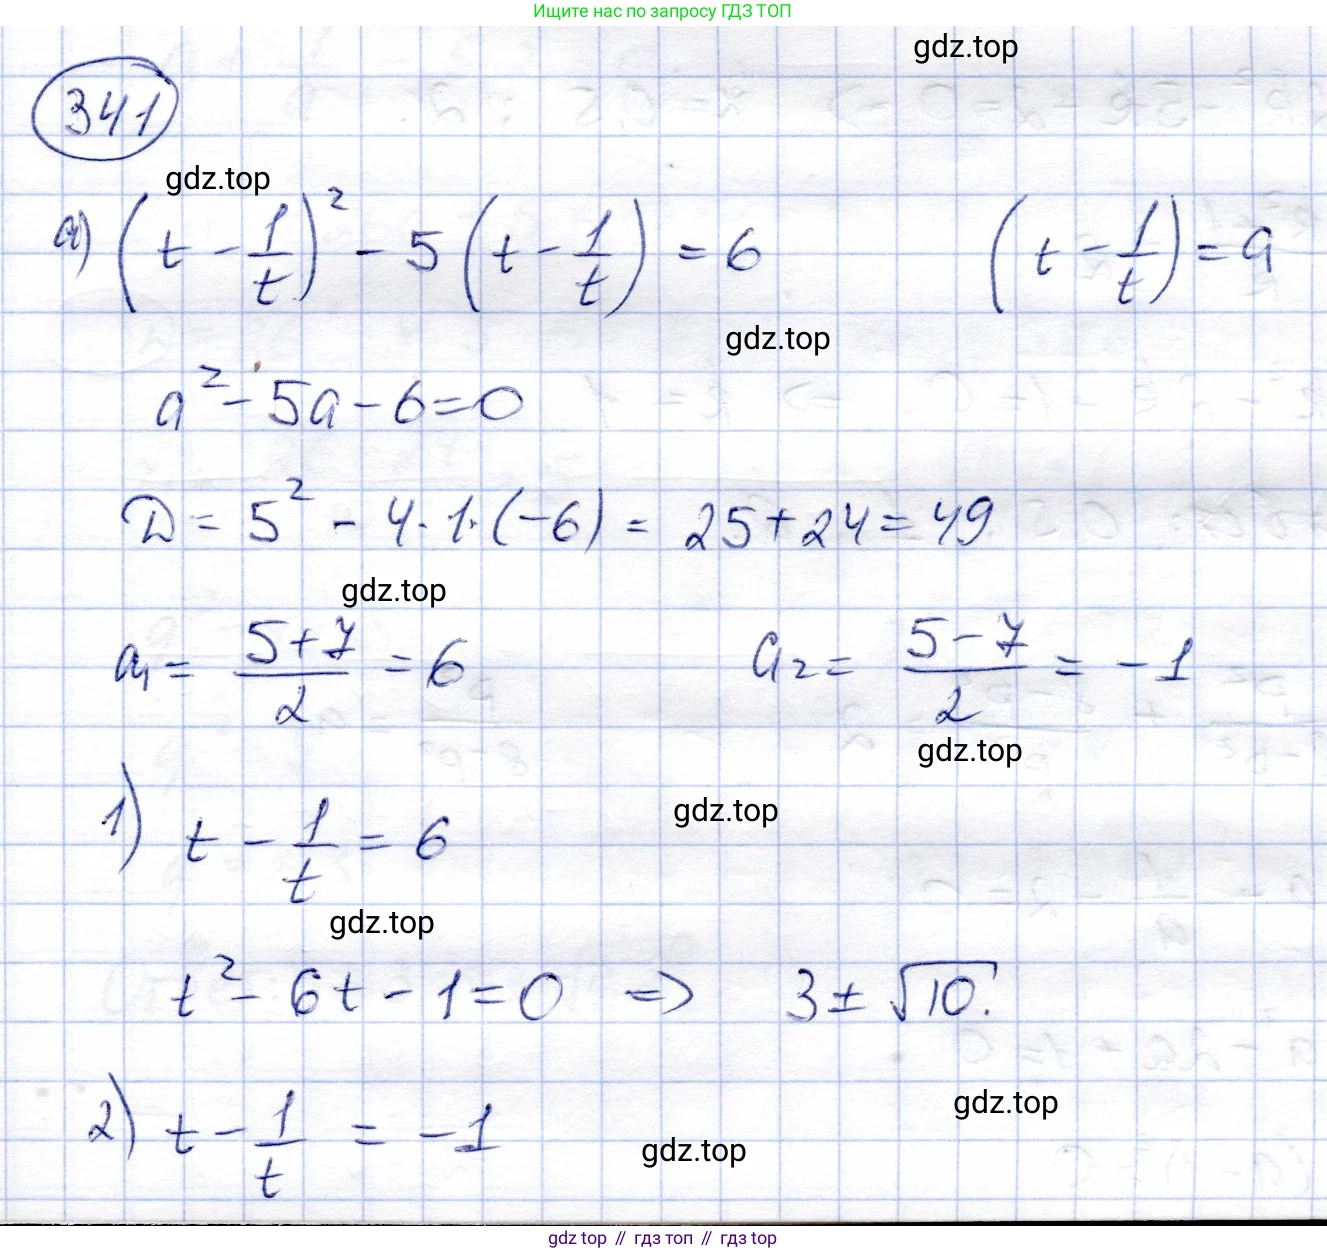 Ищите нас по запросу ГДЗ ТОП
gdz.top
341
gdz.top
а) (t - 1/t)² - 5(t - 1/t) = 6 (t - 1/t) = a
gdz.top
a² - 5a - 6 = 0
D = 5² - 4·1·(-6) = 25 + 24 = 49
gdz.top
a₁ = (5+7)/2 = 6 a₂ = (5-7)/2 = -1
gdz.top
gdz.top
1) t - 1/t = 6
gdz.top
t² - 6t - 1 = 0 => 3 ± √10.
gdz.top
2) t - 1/t = -1
gdz.top
gdz top // гдз топ // gdz top